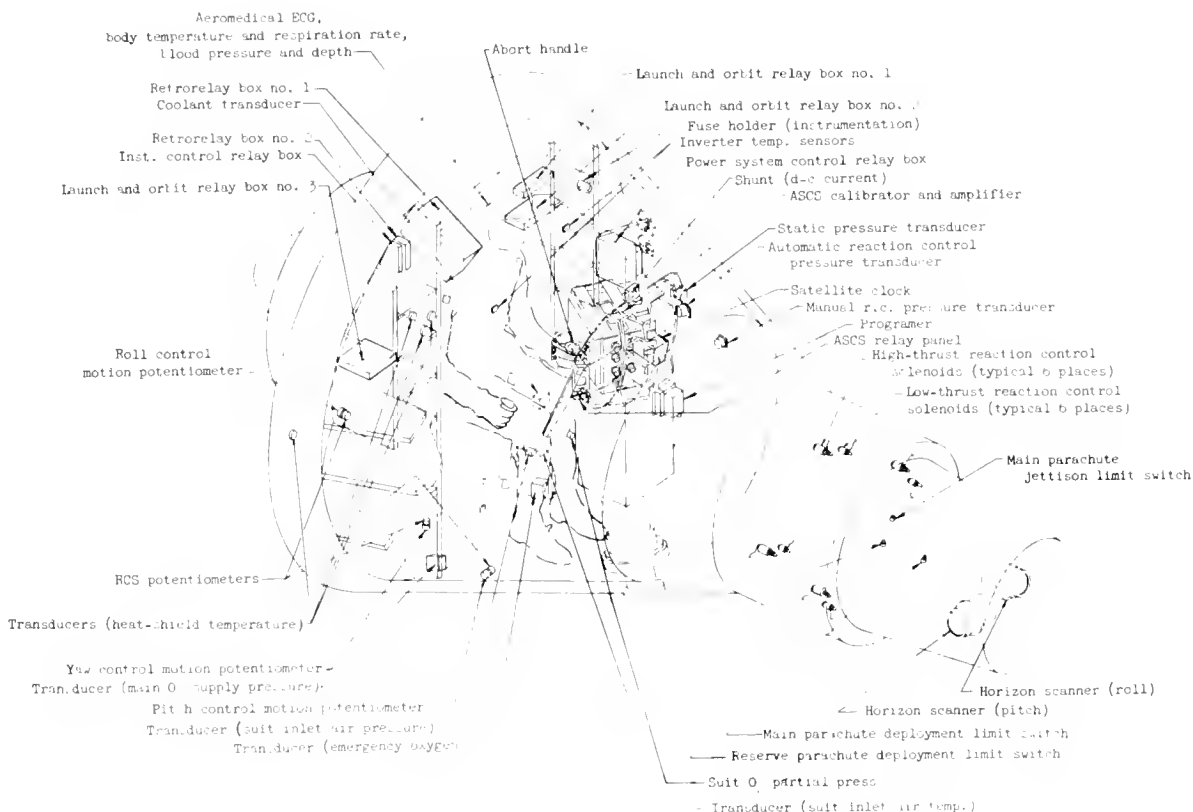 Aeromedical ECG,
body temperature and respiration rate,
blood pressure and depth
Retrorelay box no. 1
Coolant transducer
Retrorelay box no. 2
Inst. control relay box
Launch and orbit relay box no. 3
Roll control
motion potentiometer
RCS potentiometers
Transducers (heat-shield temperature)
Yaw control motion potentiometer
Transducer (main O supply pressure)
Pitch control motion potentiometer
Transducer (suit inlet air pressure)
Transducer (emergency oxygen
Abort handle
Launch and orbit relay box no. 1
Launch and orbit relay box no.
Fuse holder (instrumentation)
Inverter temp. sensors
Power system control relay box
Shunt (d-c current)
ASCS calibrator and amplifier
Static pressure transducer
Automatic reaction control
pressure transducer
Satellite clock
Manual r.c. pressure transducer
Programer
ASCS relay panel
High-thrust reaction control
solenoids (typical 6 places)
Low-thrust reaction control
solenoids (typical 6 places)
Main parachute
jettison limit switch
Horizon scanner (roll)
Horizon scanner (pitch)
Main parachute deployment limit switch
Reserve parachute deployment limit switch
Suit O partial press
Transducer (suit inlet air temp.)